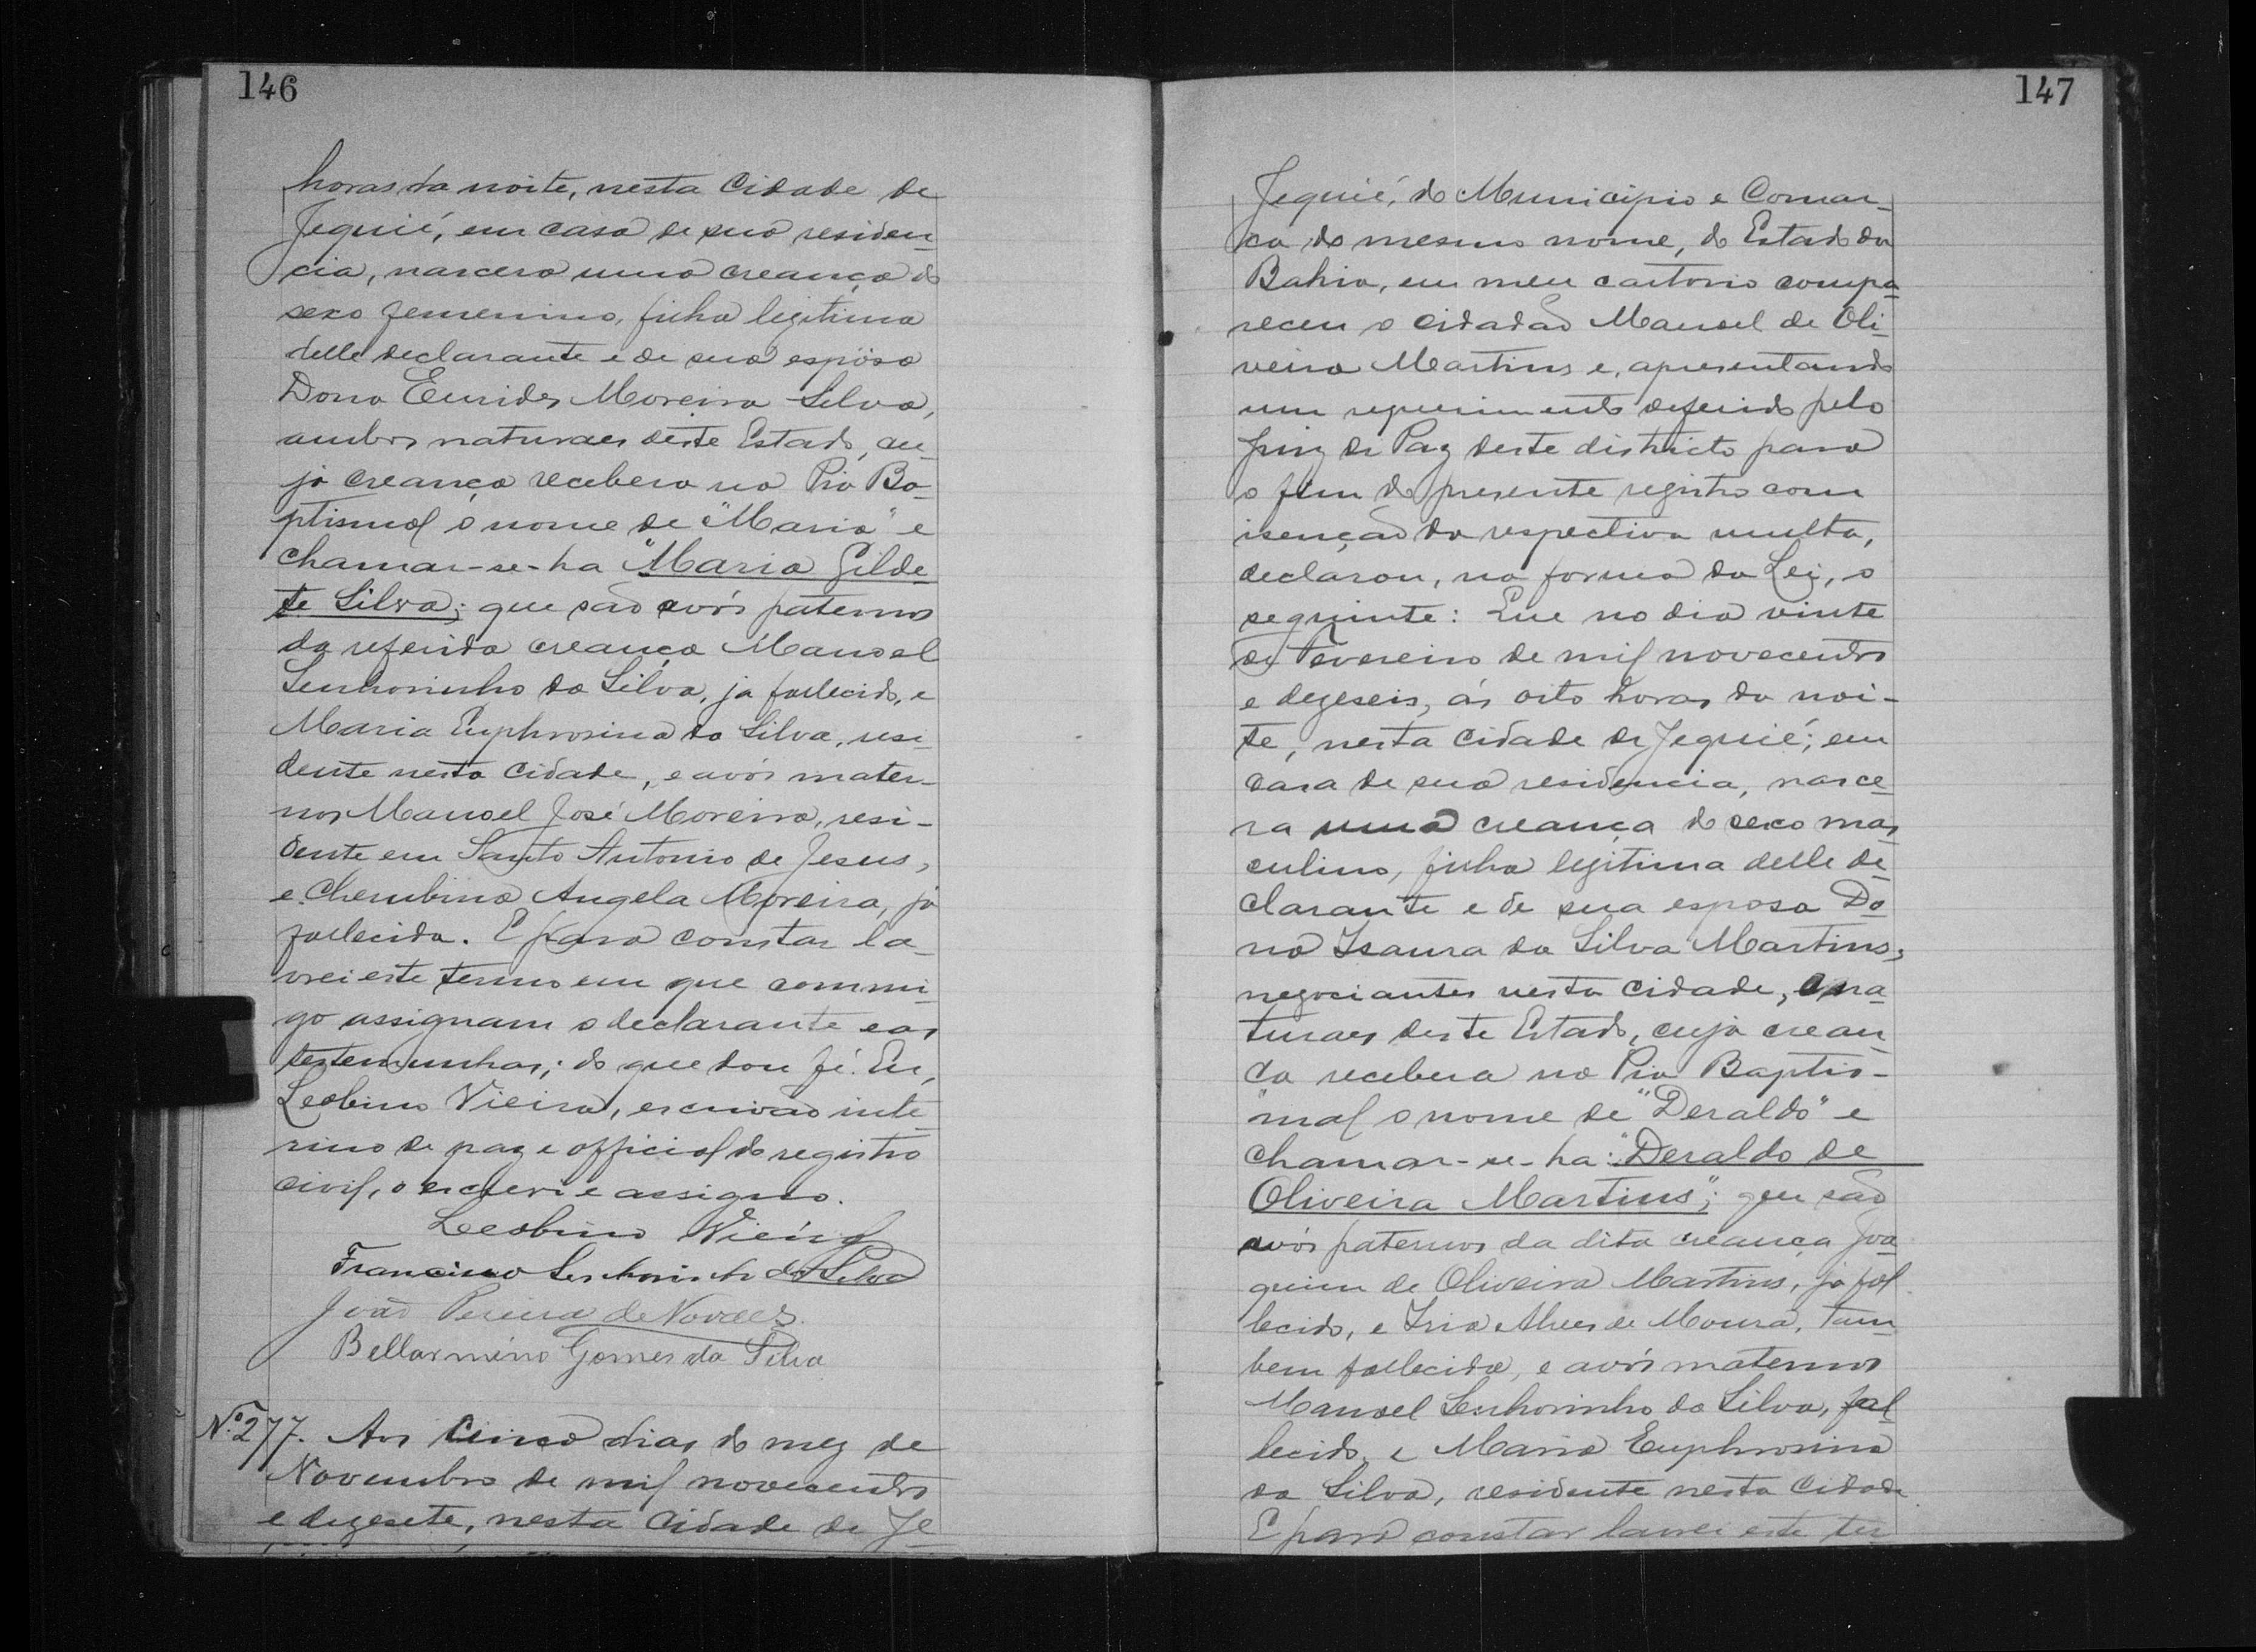 146
horas da noite, nesta Cidade de
Jequié, em casa de sua residen-
cia, nascera uma creança do
sexo femenino, filha legitima
delle declarante e de sua espôsa
Dona Eurides Moreira Silva,
ambos naturaes deste Estado, cu-
ja creança recebera na Pia Ba-
ptismal o nome de "Maria" e
chamar-se-ha "Maria Gilde-
te Silva; que são avós paternos
da referida creança Manoel
Senhorinho da Silva, já fallecido, e
Maria Euphrosina da Silva, resi-
dente nesta Cidade, e avós mater-
nos Manoel José Moreira, resi-
dente em Santo Antonio de Jesus,
e Cherubina Angela Moreira, já
fallecida. E para constar la-
vrei este termo em que commi-
go assignam o declarante e as
testemunhas; do que dou fé. Eu,
Leobino Vieira, escrivão inte-
rino de paz e official do registro
civil, o escrevi e assigno.
Leobino Vieira
Francisco Senhorinho da Silva
João Pereira de Novaes.
Bellarmino Gomes da Silva
Nº 277. Aos Cinco dias do mez de
Novembro de mil novecentos
e dezesete, nesta Cidade de Je-
147
Jequié, do Municipio e Comar-
ca do mesmo nome, do Estado da
Bahia, em meu cartorio compa-
receu o cidadão Manoel de Oli-
veira Martins e, apresentando
um requerimento deferido pelo
Juiz de Paz deste districto para
o fim do presente registro com
isenção da respectiva multa,
declarou, na forma da Lei, o
seguinte: Que no dia vinte
de Fevereiro de mil novecentos
e dezeseis, ás oito horas da noi-
te, nesta Cidade de Jequié; em
casa de sua residencia, nasce-
ra uma creança do sexo mas
culino, filha legitima delle de-
clarante e de sua esposa Do-
na Isaura da Silva Martins,
negociantes nesta Cidade, e na-
turaes deste Estado, cuja crean-
ça recebera na Pia Baptis-
mal o nome de "Deraldo" e
chamar-se-ha: "Deraldo de
Oliveira Martins"; que são
avós paternos da dita creança Joa-
quim de Oliveira Martins, já fal-
lecido, e Iria Alves de Moura, tam-
bem fallecida, e avós maternos
Manoel Senhorinho da Silva, fal-
lecido, e Maria Euphrosina
da Silva, residente nesta Cidade.
E para constar lavrei este ter-